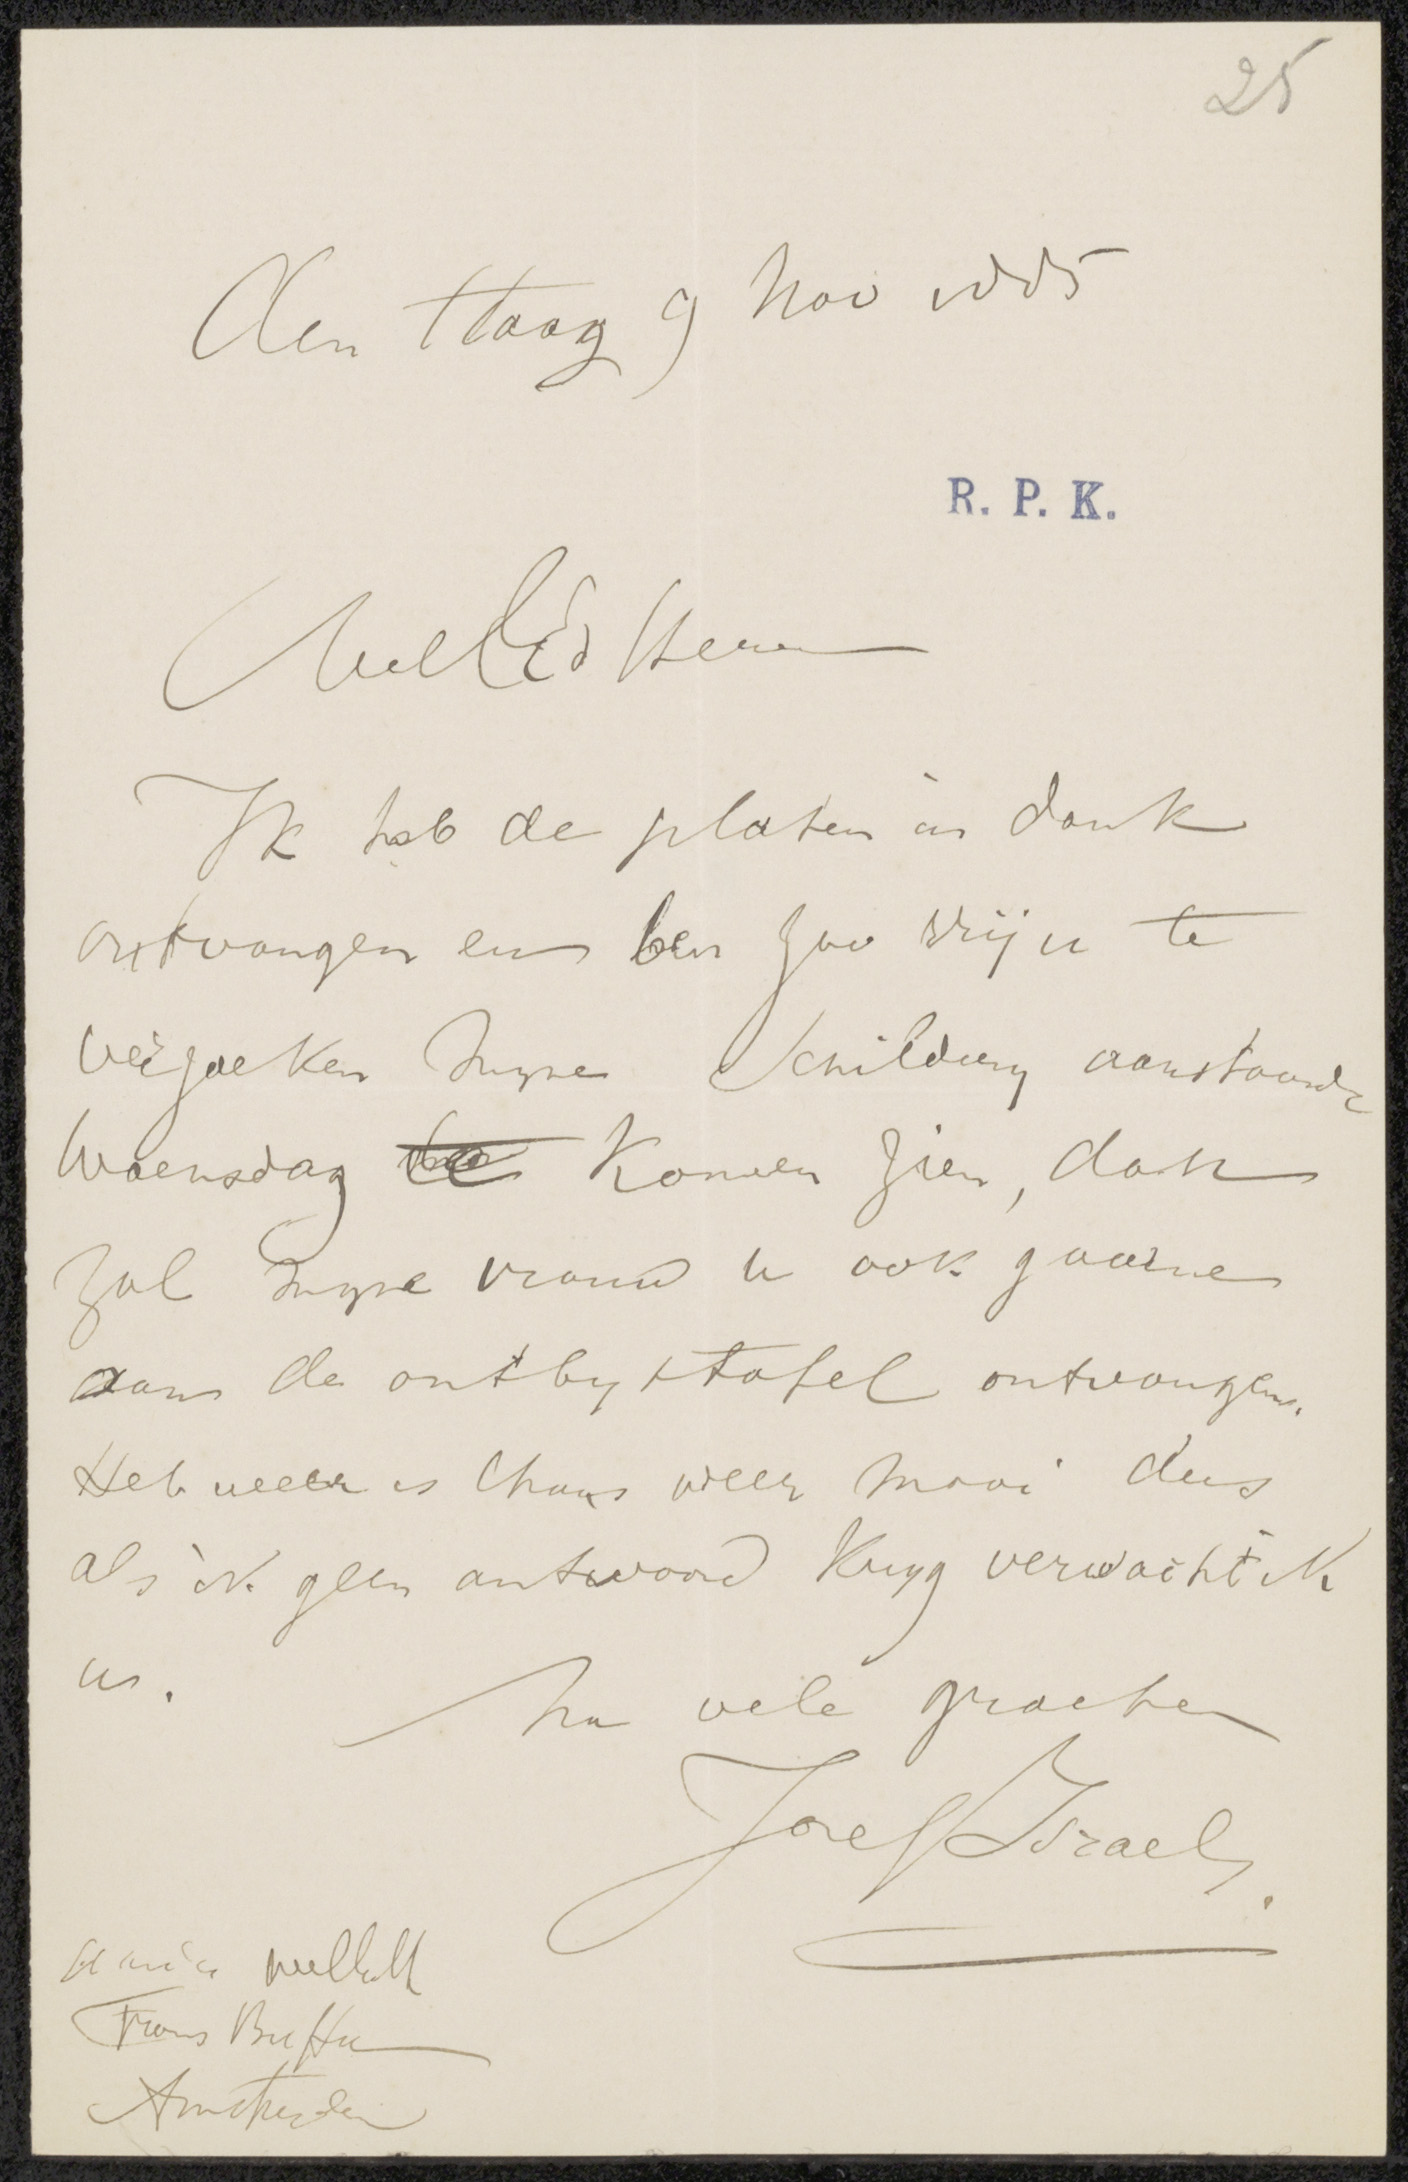 25
Den Haag 9 Nov 1885
R. P. K.
WelEd Heer
Ik heb de platen in dank
ontvangen en ben zoo vrij u te
verzoeken myne Schildery aanstaande
Woensdag te komen zien, dan
zal myne vrouw u ook gaarne
aan de ontbyttafel ontvangen.
Het weer is thans weer mooi dus
als ik geen antwoord kryg verwacht ik
u.
Na vele groeten
Jozef Israels.
Frans Buffa
Amsterdam